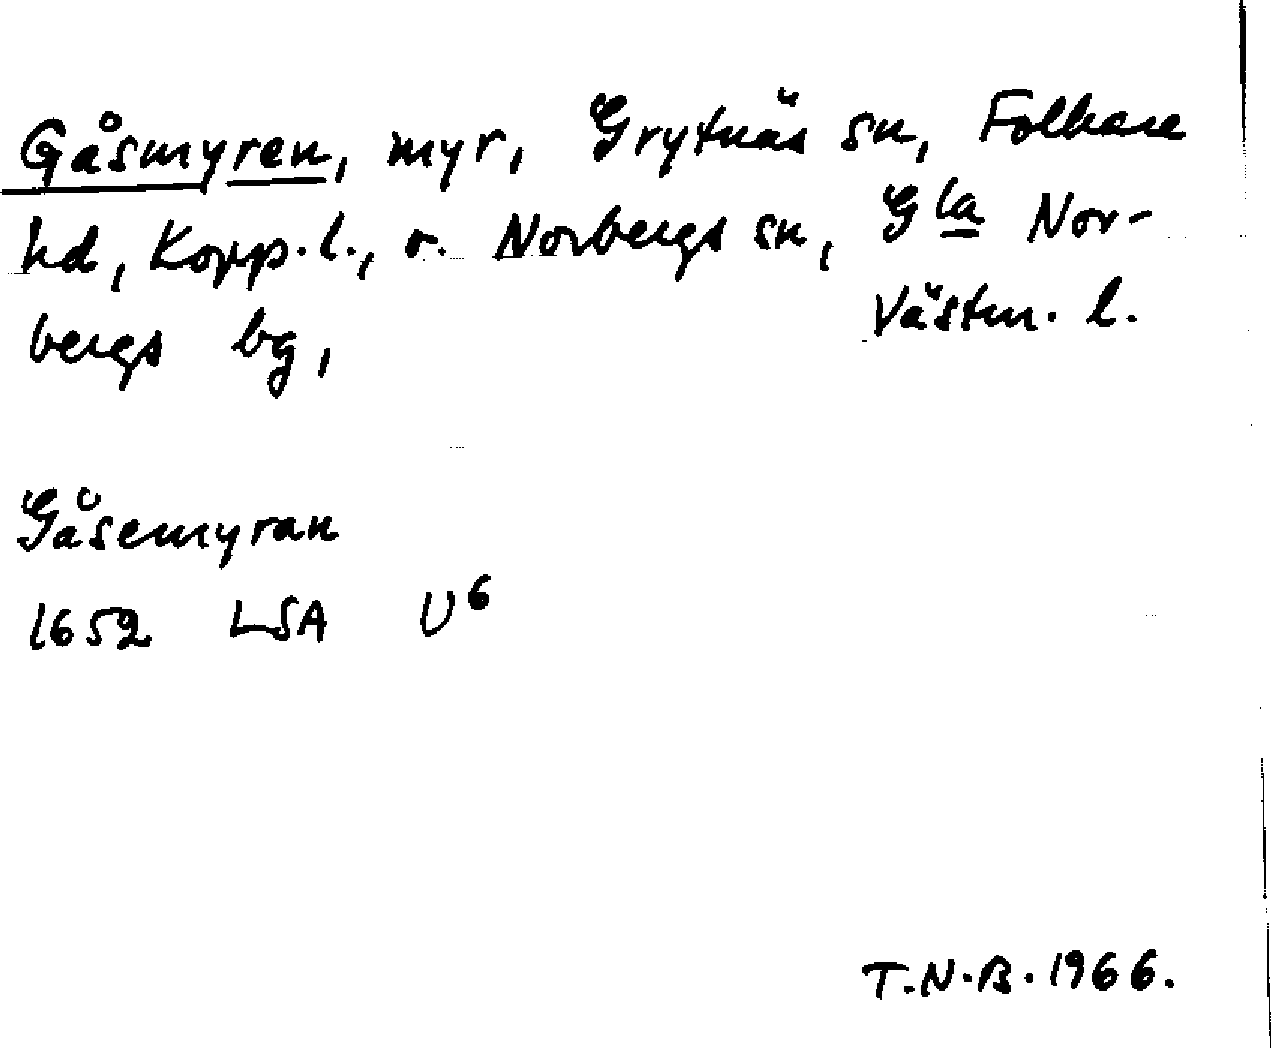 Gåsmyren, myr, Grytnäs sn, Folkare
hd, Kopp. l., o. Norbergs sn, Gla Nor-
bergs bg, Västm. l.
Gåsemyran
1652 LSA U6
T.N.B. 1966.